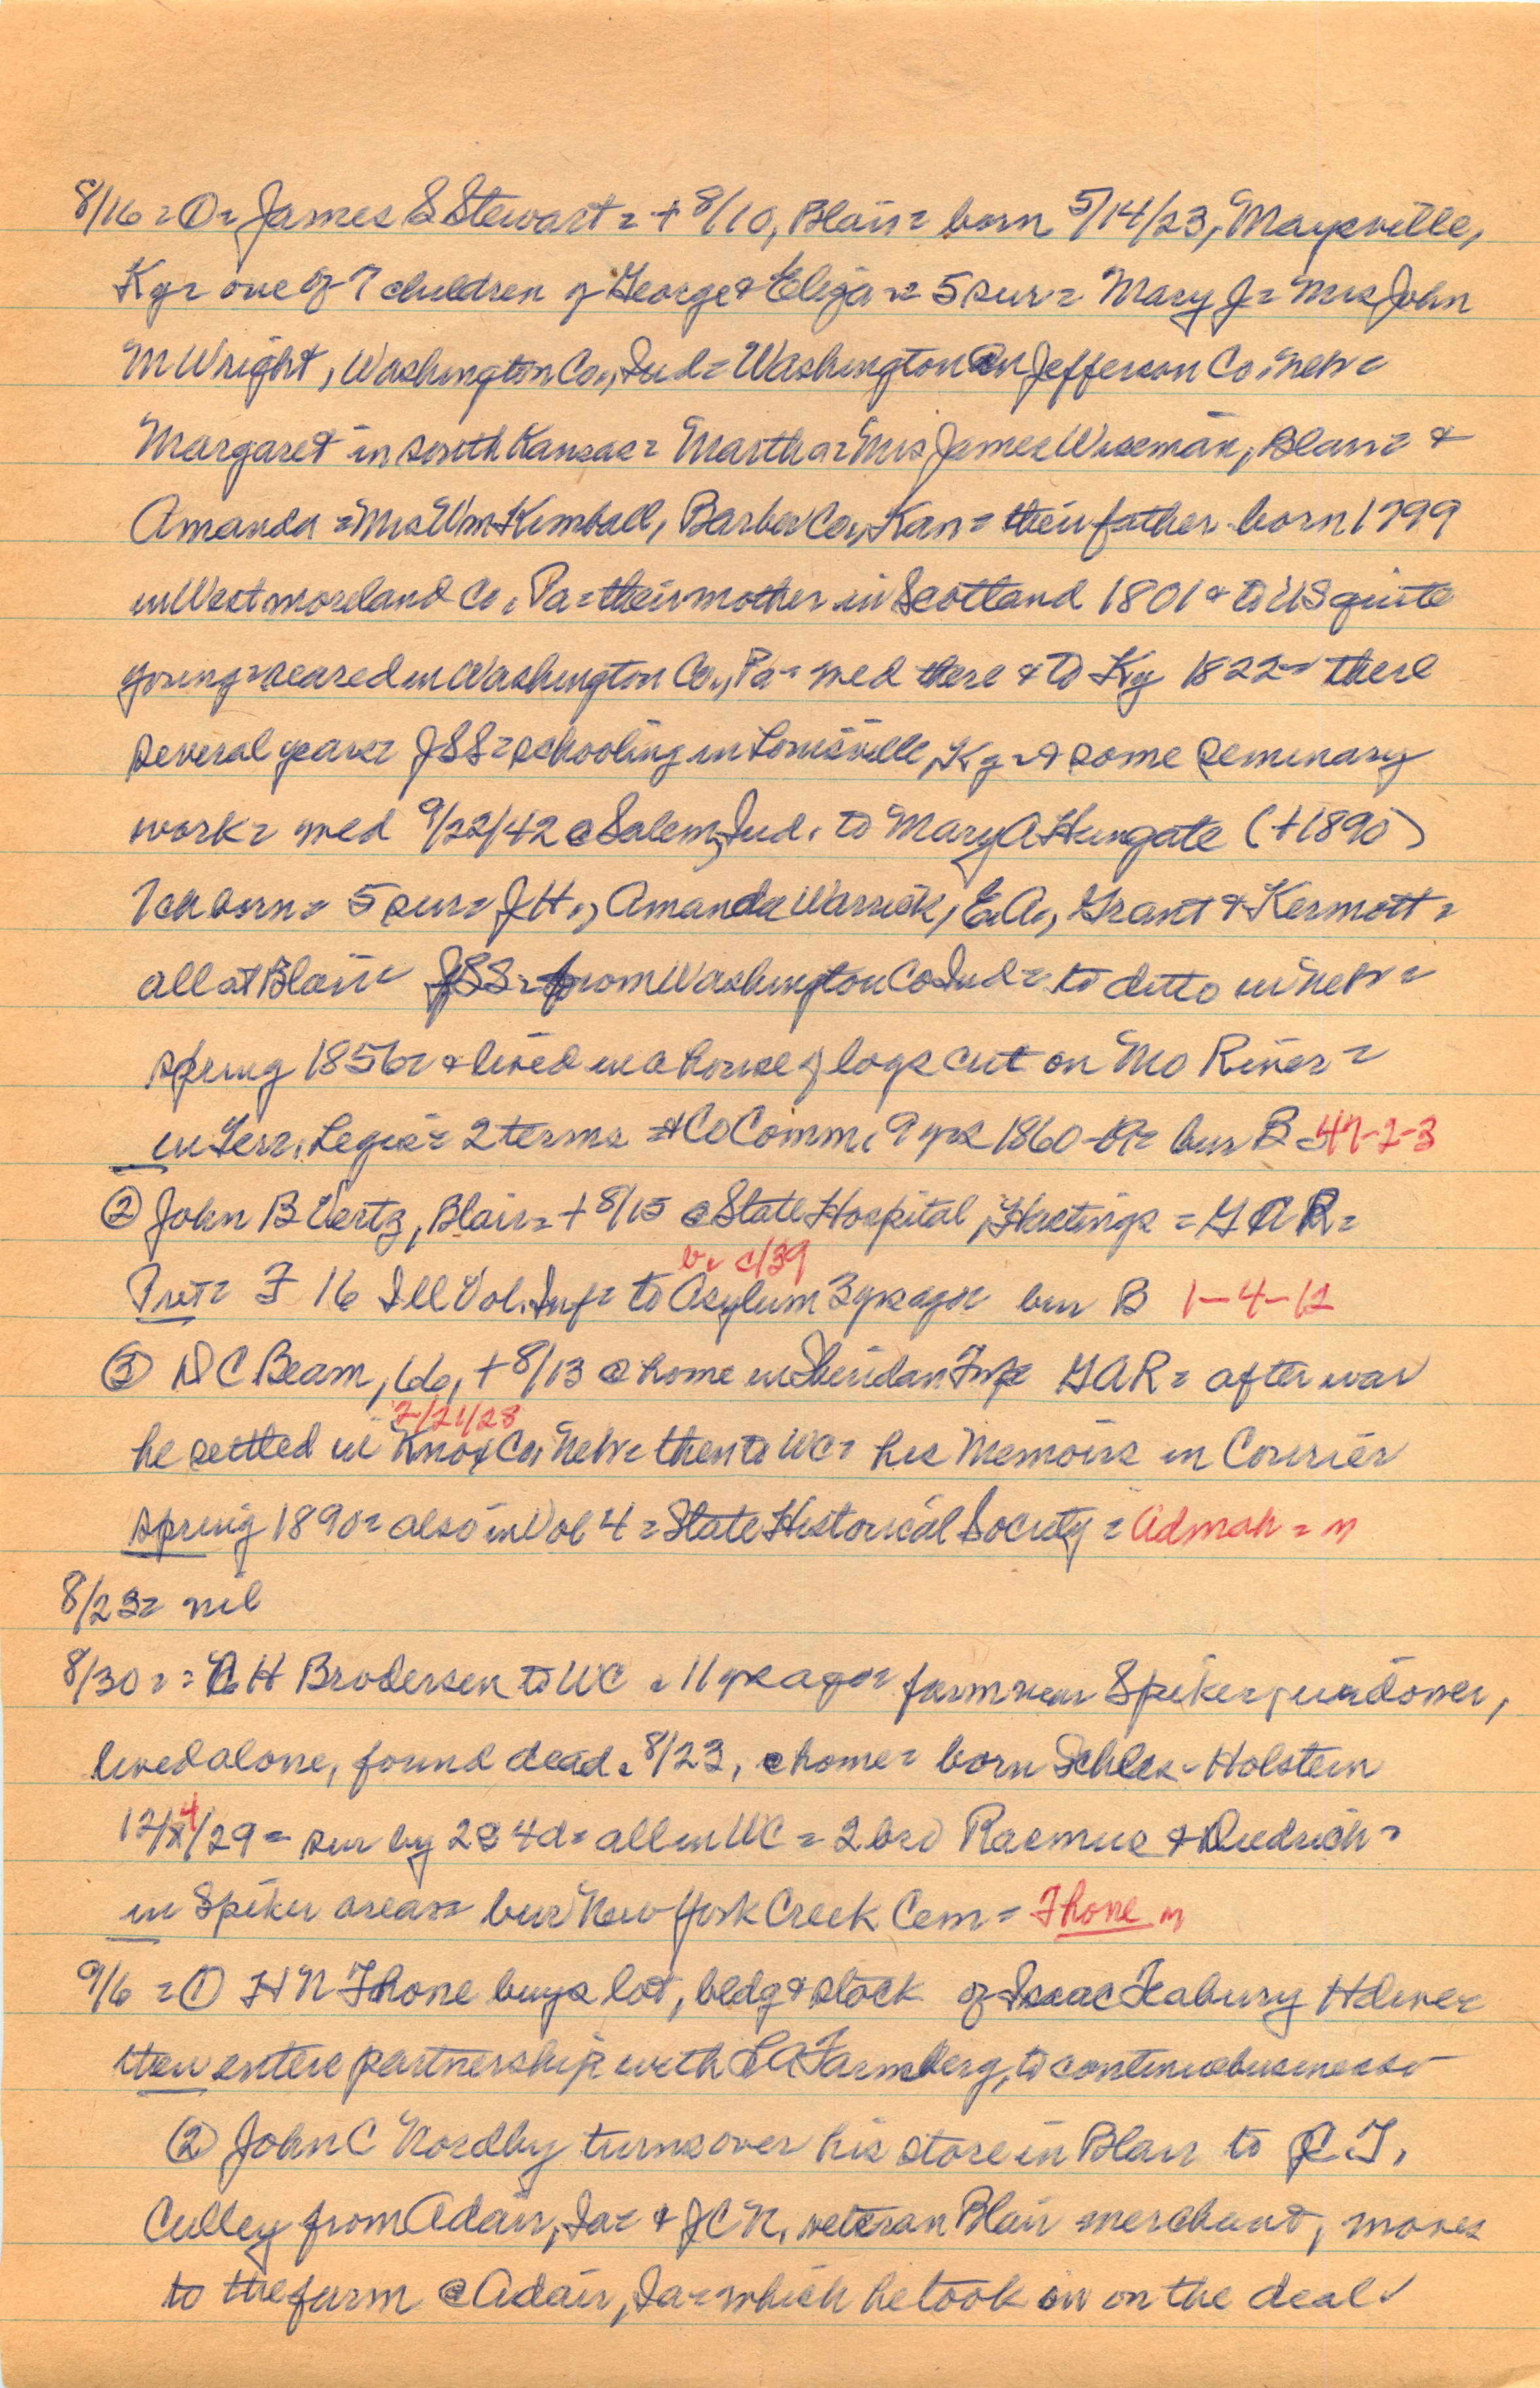 8/16 = ① = James S Stewart = + 8/10, Blair = born 5/14/23, Maysville,
Ky = one of 7 children of George & Eliza = 5 sur = Mary J = Mrs John
M Wright, Washington Co., Ind = Washington in Jefferson Co. Neb =
Margaret in south Kansas = Martha = Mrs James Wiseman, Blair = &
Amanda = Mrs Wm Kimball, Barber Co., Kan = their father born 1799
in Westmoreland Co. Pa = their mother in Scotland 1801 & to US quite
young = reared in Washington Co., Pa = med there & to Ky 1822 = there
several years = JSS = schooling in Louisville, Ky = & some seminary
work = med 9/22/42 @ Salem, Ind. to Mary A Hungate (+1890)
7 ch born = 5 sur = J H., Amanda Warrick, E.A., Grant & Kermott =
all at Blair = JSS = from Washington Co Ind = to ditto in Neb =
spring 1856 = & lived in a house of logs cut on Mo River =
in Terr. Legis = 2 terms = & Co Comm. 9 yrs 1860- bur B = 47-2-3
② John B Vertz, Blair = + 8/15 @ State Hospital, Hastings = GAR =
b. c/39
Pvt = F 16 Ill Vol. Inf = to Asylum 3 yrs ago = bur B 1-4-12
③ D C Beam, 66, + 8/13 @ home in Sheridan Twp GAR = after war
2/21/28
he settled in Knox Co, Neb = then to WC = his Memoirs in Courier
spring 1890 = also in Vol 4 = State Historical Society = Admah = n
8/23 = nil
8/30 = = A H Brodersen to WC = 11 yrs ago = farm near Spiker, widower,
lived alone, found dead. 8/23, @ home = born Schles-Holstein
4
12/ /29 = sur by 2 s 4 d = all in WC = 2 bro Rasmus & Diedrich =
in Spiker area = bur New York Creek Cem = Thone n
9/6 = ① H N Thone buys lot, bldg & stock of Isaac Seabury Hdwe =
then enters partnership with L A Farmberg, to continue business =
② John C Nordby turns over his store in Blair to C T.
Culley from Adair, Ia = & JCN, veteran Blair merchant, moves
to the farm @ Adair, Ia = which he took in on the deal